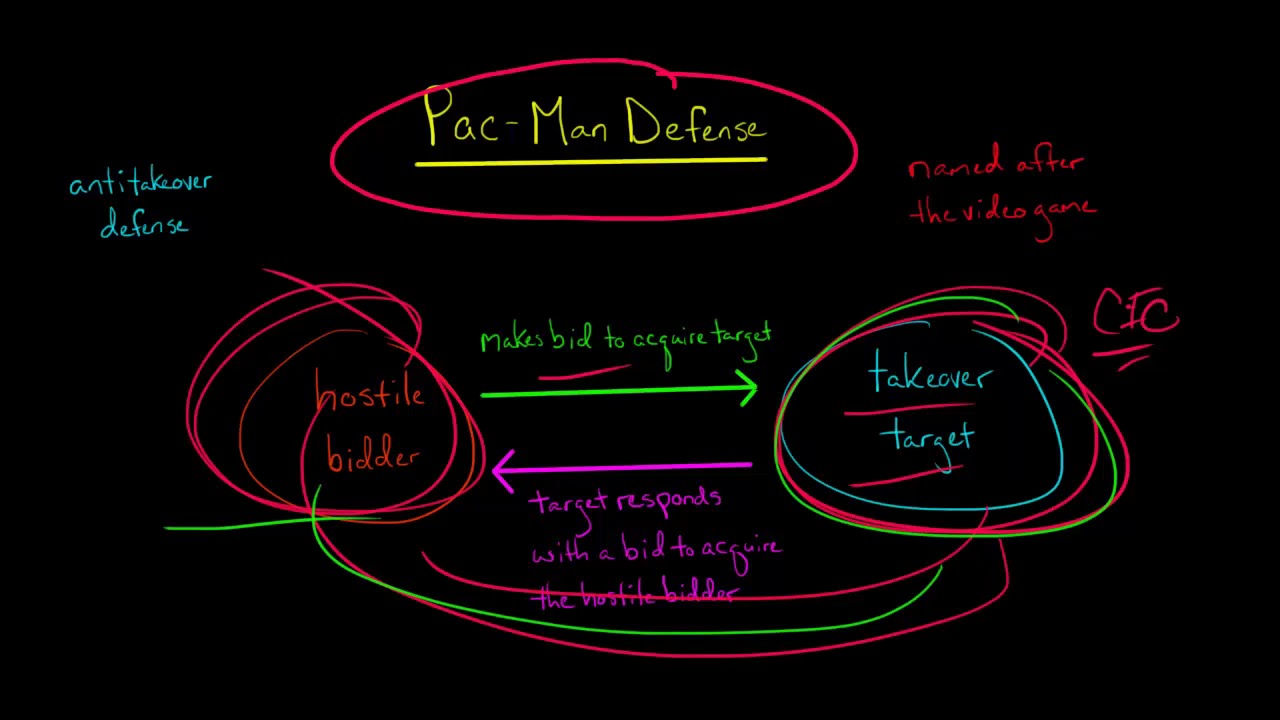 Pac-Man Defense
antitakeover
defense
named after
the video game
CIC
makes bid to acquire target
hostile
bidder
takeover
target
target responds
with a bid to acquire
the hostile bidder